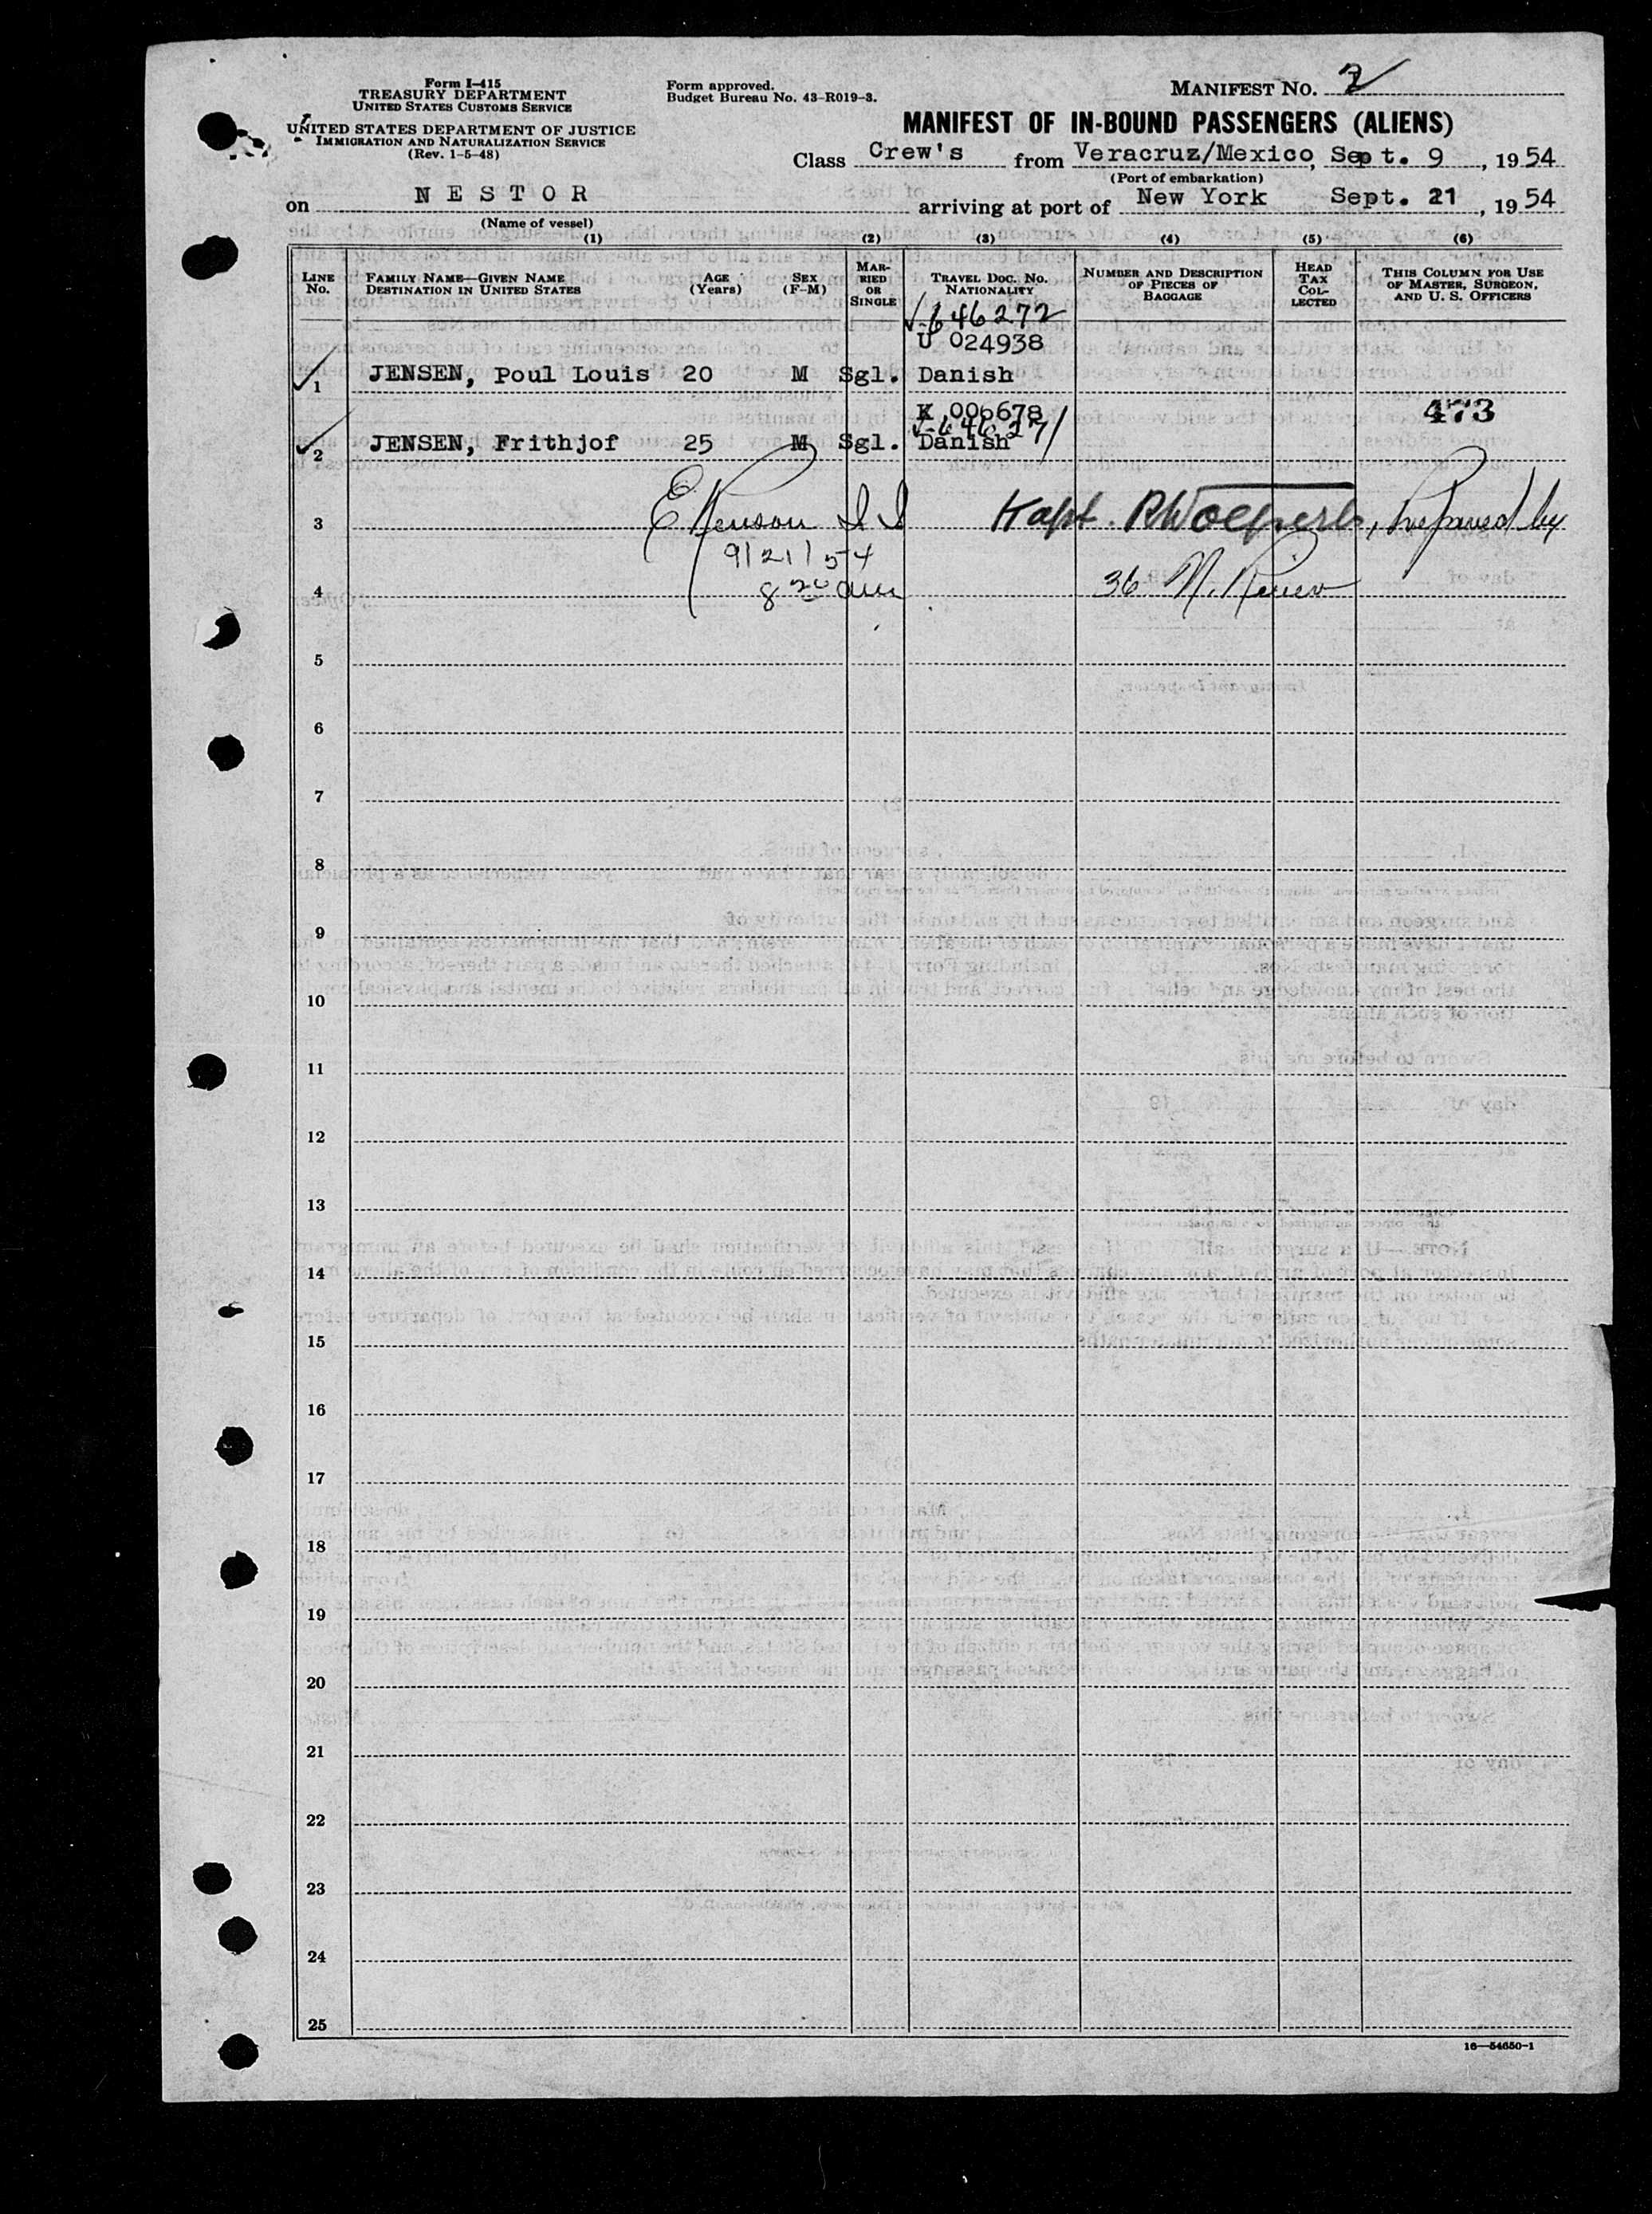 Form I-415
TREASURY DEPARTMENT
UNITED STATES CUSTOMS SERVICE
UNITED STATES DEPARTMENT OF JUSTICE
IMMIGRATION AND NATURALIZATION SERVICE
(Rev. 1-5-48)
Form approved.
Budget Bureau No. 43-R019-3.
MANIFEST NO. 2
MANIFEST OF IN-BOUND PASSENGERS (ALIENS)
Class Crew's from Veracruz/Mexico, Sept. 9, 1954
(Port of embarkation)
on NESTOR arriving at port of New York Sept. 21, 1954
(Name of vessel)
(1) (2) (3) (4) (5) (6)
LINE No. FAMILY NAME—GIVEN NAME DESTINATION IN UNITED STATES AGE (Years) SEX (F-M) MARRIED OR SINGLE TRAVEL DOC. NO. NATIONALITY NUMBER AND DESCRIPTION OF PIECES OF BAGGAGE HEAD TAX COLLECTED THIS COLUMN FOR USE OF MASTER, SURGEON, AND U. S. OFFICERS
V-646272
U 024938
1 JENSEN, Poul Louis 20 M Sgl. Danish
K 006678 473
V-646271
2 JENSEN, Frithjof 25 M Sgl. Danish
3 Kapt. , Prepared by
9/21/54
4 8 20 am 36 N. River
5
6
7
8
9
10
11
12
13
14
15
16
17
18
19
20
21
22
23
24
25
16—54650-1